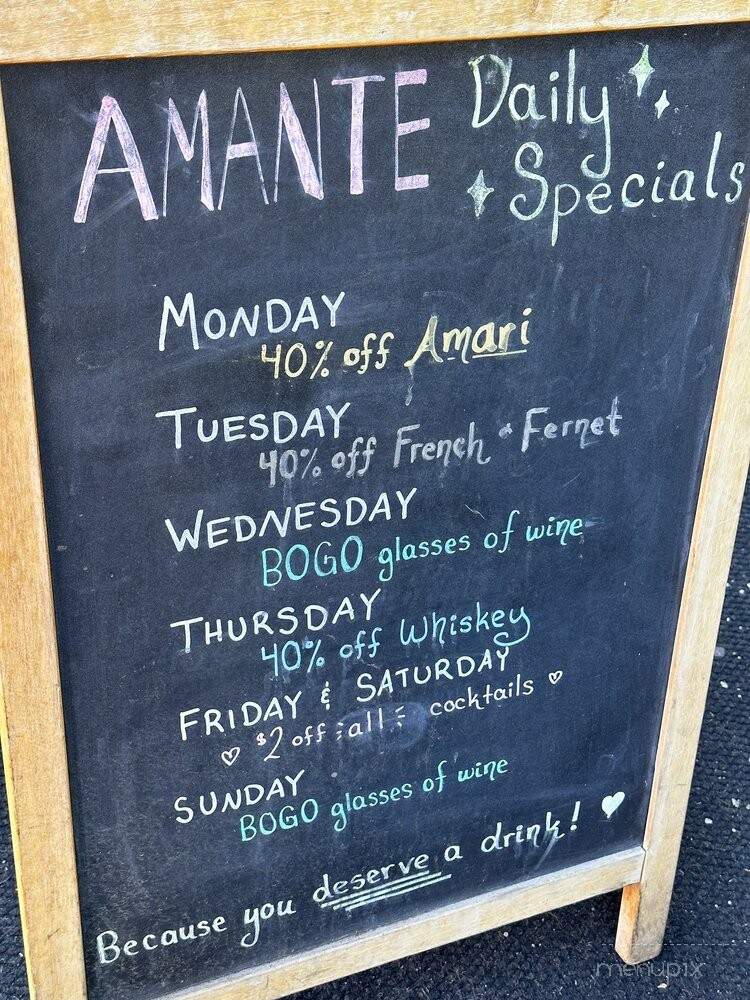 AMANTE Daily
Specials
MONDAY
40% off Amari
TUESDAY
40% off French • Fernet
WEDNESDAY
BOGO glasses of wine
THURSDAY
40% off Whiskey
FRIDAY & SATURDAY
♡ $2 off all cocktails ♡
SUNDAY
BOGO glasses of wine
Because you deserve a drink! ♥
menupix